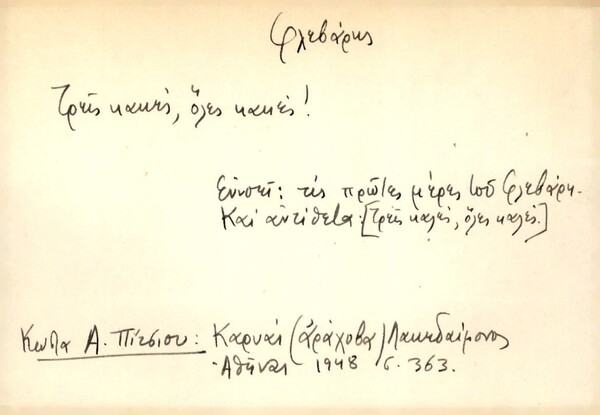 Φλεβάρης
Τρεῖς κακές, ὅλες κακές!
Ἐννοεῖ: τὶς πρῶτες μέρες τοῦ Φλεβάρη.
Καὶ ἀντίθετα: [Τρεῖς καλές, ὅλες καλές.]
Κωστα Α. Πίτσιου: Καρυαί (ἀράχοβα) Λακεδαίμονος
Ἀθῆναι 1948 σ. 363.